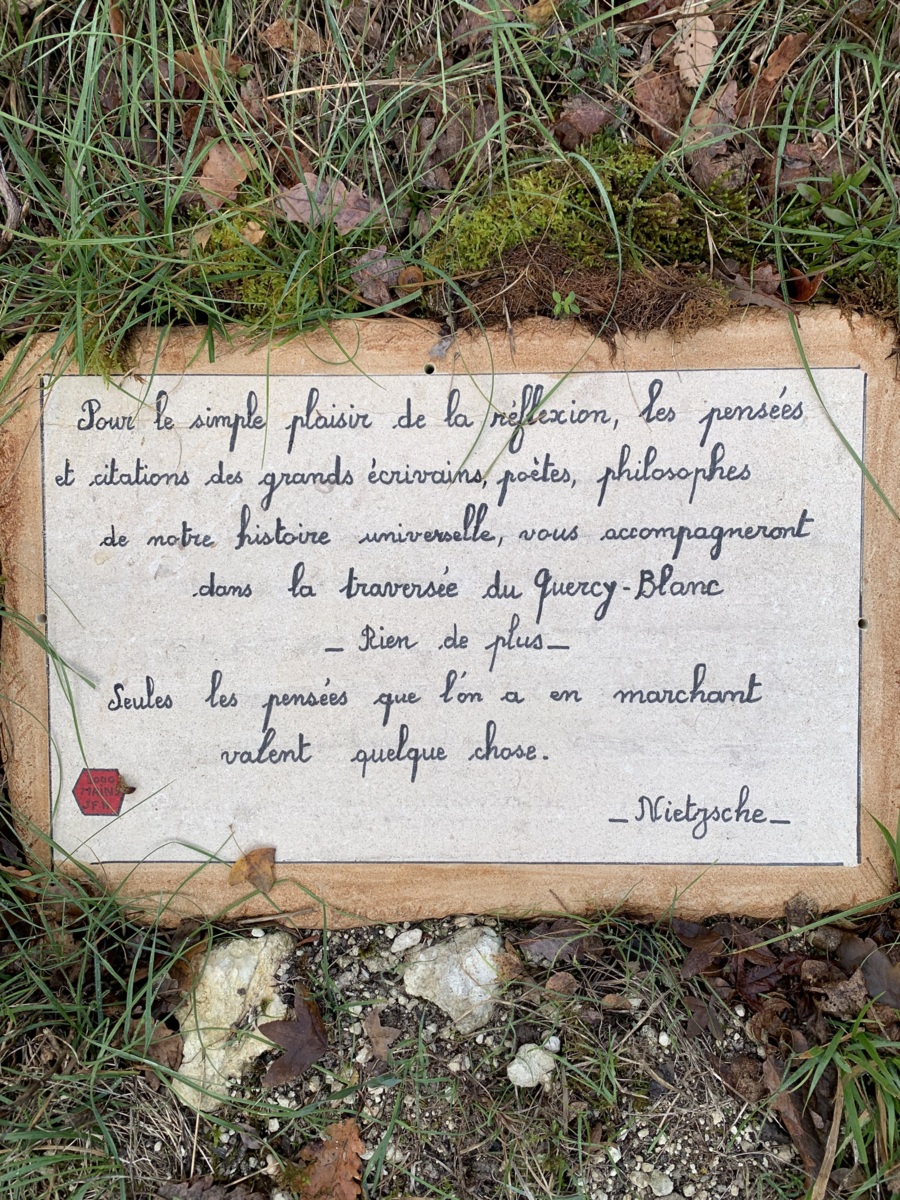 Pour le simple plaisir de la réflexion, les pensées
et citations des grands écrivains, poètes, philosophes
de notre histoire universelle, vous accompagneront
dans la traversée du Quercy-Blanc
_ Rien de plus _
Seules les pensées que l'on a en marchant
valent quelque chose.
_ Nietzsche _
MAINS